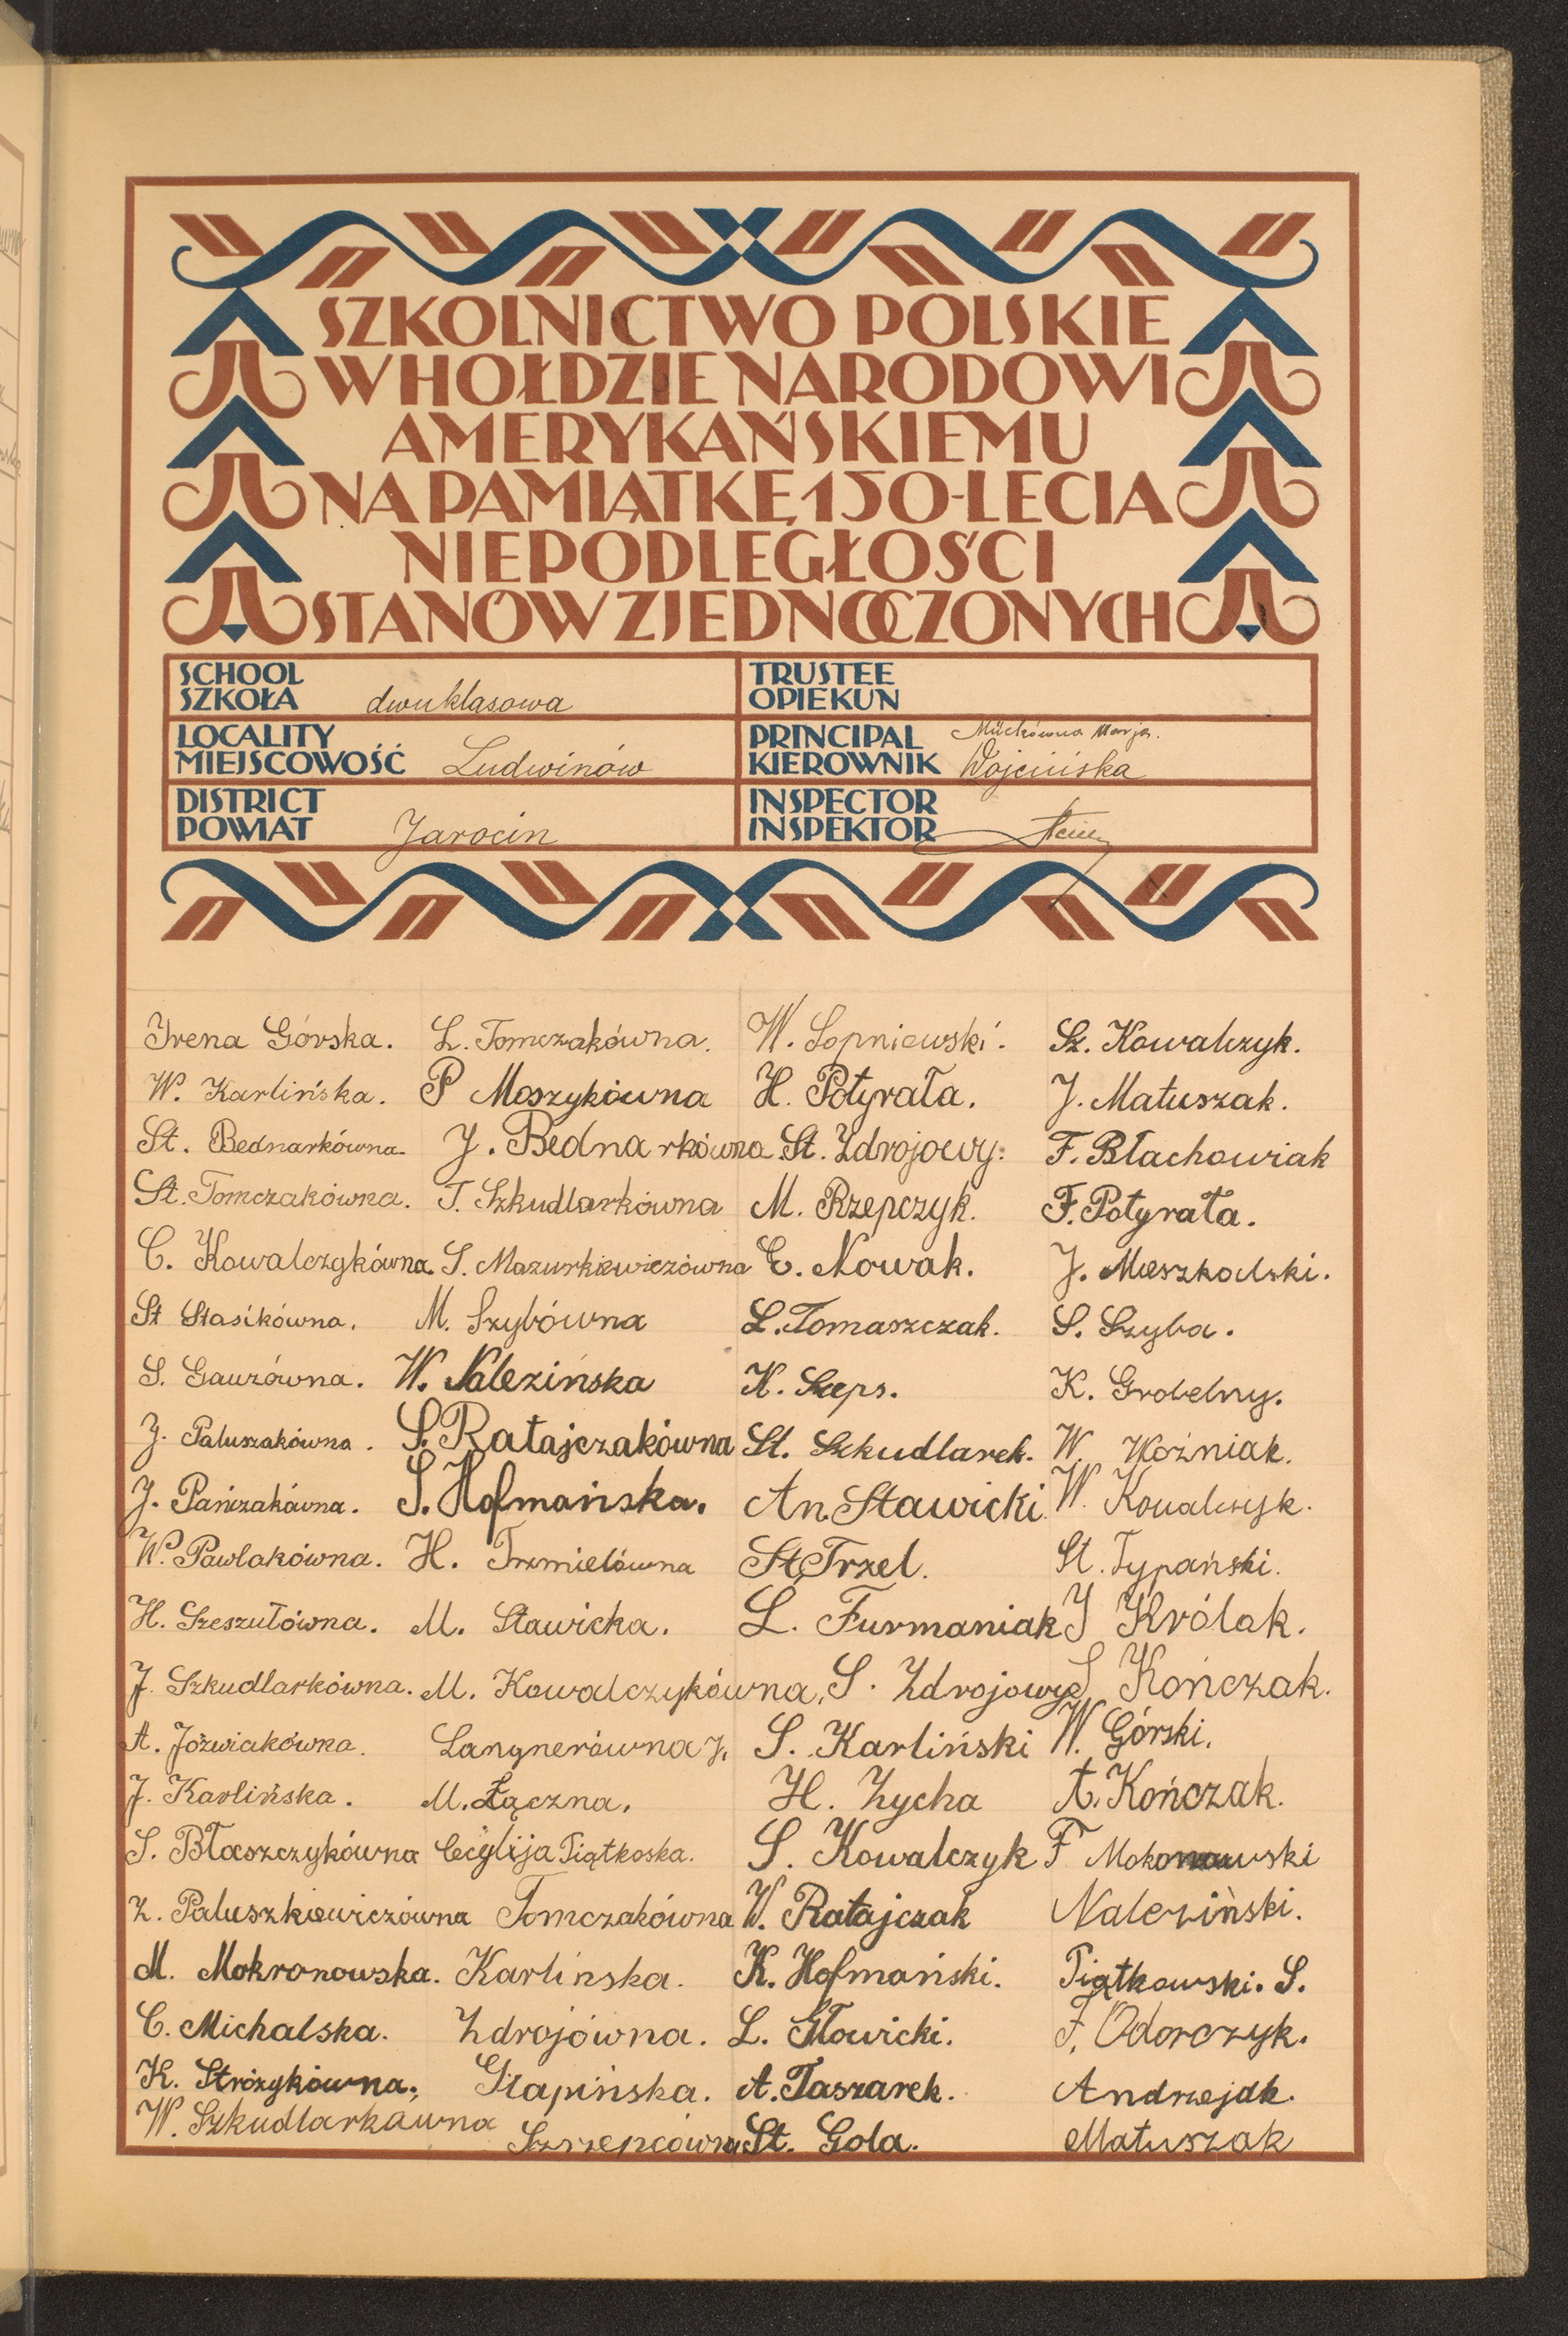 SZKOLNICTWO POLSKIE
W HOŁDZIE NARODOWI
AMERYKAŃSKIEMU
NA PAMIĄTKĘ 150-LECIA
NIEPODLEGŁOŚCI
STANÓW ZJEDNOCZONYCH
SCHOOL
SZKOŁA dwuklasowa
TRUSTEE
OPIEKUN
LOCALITY
MIEJSCOWOŚĆ Ludwinów
PRINCIPAL Mückówna Marja.
KIEROWNIK Wojcińska
DISTRICT
POWIAT Jarocin
INSPECTOR
INSPEKTOR
Irena Górska. L. Tomczakówna. W. Sopniewski. Sz. Kowalczyk.
W. Karlińska. P Moszykówna H. Potyrała. J. Matuszak.
St. Bednarkówna. J. Bednarkówna St. Zdrojowy. F. Błachowiak
St. Tomczakówna. T. Szkudlarkówna M. Rzepczyk. F. Potyrała.
C. Kowalczykówna. S. Mazurkiewiczówna E. Nowak. J. Mieszkalski.
St Stasikówna. M. Szybówna L. Tomaszczak. S. Szyba.
S. Gauzówna. W. Nalezińska K. Szeps. K. Grobelny.
J. Paluszakówna. S. Ratajczakówna St. Szkudlarek. W. Woźniak.
J. Pańczakówna. S. Hofmańska. An. Stawicki. W. Kowalczyk.
W. Pawlakówna. H. Trzmielówna St. Trzel. St. Typański.
H. Szeszułówna. M. Stawicka. L. Furmaniak J Królak.
J. Szkudlarkówna. M. Kowalczykówna. S. Zdrojowy S Kończak.
A. Jóźwiakówna. Langnerówna J. S. Karliński W. Górski.
J. Karlińska. M. Łączna. H. Zycha A. Kończak.
S. Błaszczykówna Cecylija Piątkoska. S. Kowalczyk F Mokonowski
Z. Paluszkiewiczówna Tomczakówna W. Ratajczak Naleziński.
M. Mokronowska. Karlinska. K. Hofmański. Piątkowski. S.
C. Michalska. Zdrojówna. L. Głowicki. F. Odorczyk.
K. Stróżykówna. Głapińska. A. Taszarek. Andrzejak.
W. Szkudlarkówna Szrzepcówna St. Gola. Matuszak